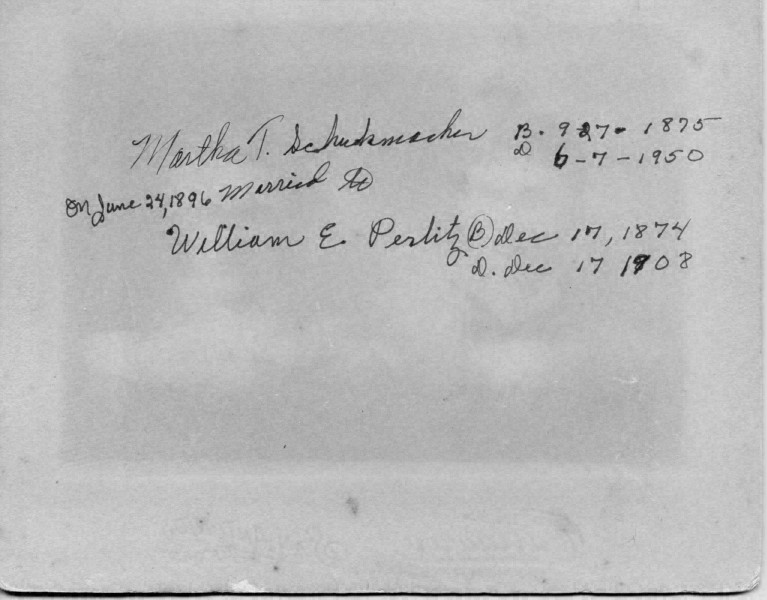 Martha T. Schuhmacher B. 9-27- 1875
D 6-7-1950
On June 24, 1896 Married to
William E. Perlitz (B) Dec 17, 1874
D. Dec 17 1908